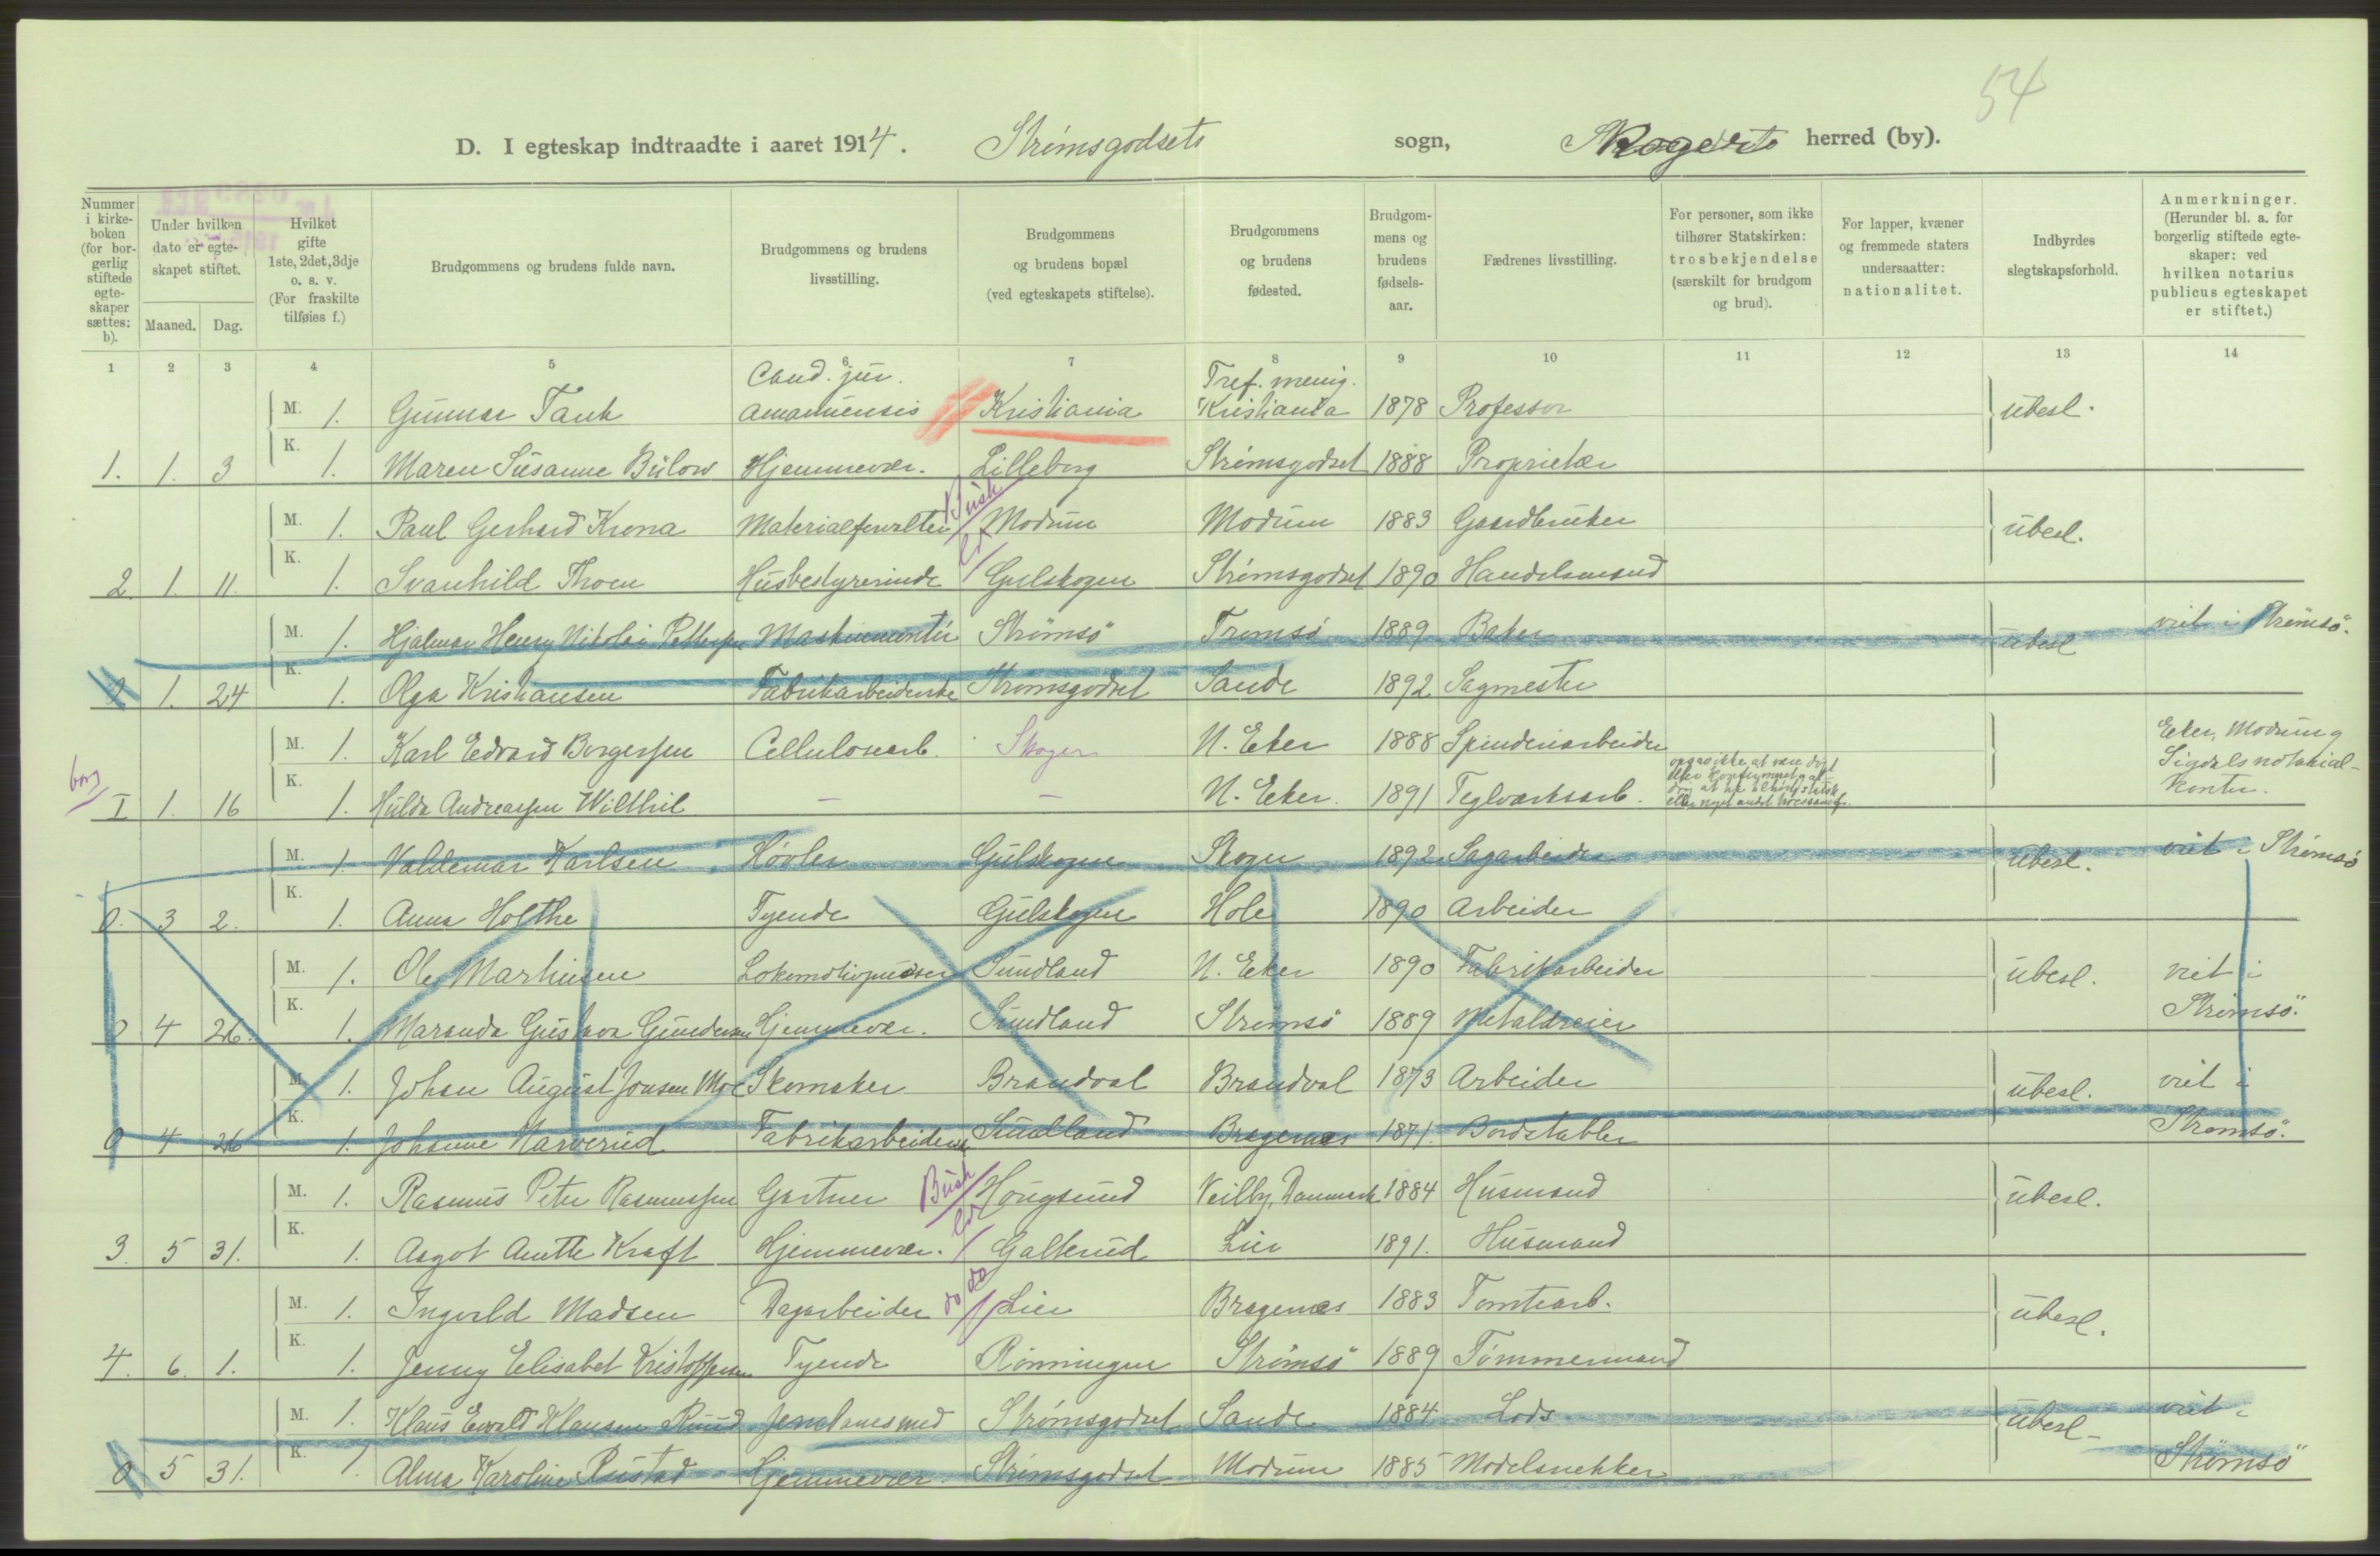 54
D. I egteskap indtraadte i aaret 1914. Strømsgodsets sogn, Skoger herred (by).
Nummer i kirke-boken (for bor-gerlig stiftede egte-skaper sættes: b).
Under hvilken dato er egte-skapet stiftet.
Maaned. Dag.
Hvilket gifte 1ste, 2det, 3dje o. s. v. (For fraskilte tilføies f.)
Brudgommens og brudens fulde navn.
Brudgommens og brudens livsstilling.
Brudgommens og brudens bopæl (ved egteskapets stiftelse).
Brudgommens og brudens fødested.
Brudgom-mens og brudens fødsels-aar.
Fædrenes livsstilling.
For personer, som ikke tilhører Statskirken: trosbekjendelse (særskilt for brudgom og brud).
For lapper, kvæner og fremmede staters undersaatter: nationalitet.
Indbyrdes slegtskapsforhold.
Anmerkninger. (Herunder bl. a. for borgerlig stiftede egte-skaper: ved hvilken notarius publicus egteskapet er stiftet.)
1 2 3 4 5 6 7 8 9 10 11 12 13 14
Cand. jur. Tref. menig.
M. 1. Gunnar Tank amanuensis Kristiania Kristiania 1878 Professor ubesl.
1. 1. 3 K. 1. Maren Susanne Bülow Hjemmevær. Lilleborg Strömsgodset 1888 Proprietær
M. 1. Paul Gerhard Krona Materialforvalter Busk Modum Modum 1883 Gaardbruker ubesl.
2. 1. 11. K. 1. Svanhild Thoen Husbestyrerinde Gulskogen Strömsgodset 1890 Handelsmand
M. 1. Hjalmar Henry Nikolai Pettersen Maskinmontør Strömsö Tromsö 1889 Baker ubesl viet i Strömsö.
0 1. 24 K. 1. Olga Kristiansen Fabrikarbeiderske Strømsgodset Sande 1892 Sagmester
M. 1. Karl Edvard Borgersen Cellulosearb. Skoger N. Eker 1888 Spinderiarbeider Eker, Modum og
Sigdals notarial-
kontor.
borg
I 1. 16 K. 1. Hulda Andreassen Wilthil — — N. Eker. 1891 Teglverksarb.
M. 1. Valdemar Karlsen Høvler Gulskogen Skoger 1892 Sagarbeider ubesl. viet i Strømsö
0. 3 2. K. 1. Anna Holthe Tyende Gulskogen Hole 1890 Arbeider
M. 1. Ole Marhinsen Lokomotivpudser Sundland N. Eker 1890 Fabrikarbeider ubesl. viet i
0 4 26. K. 1. Maranda Gustava Gundersen Hjemmevær. Sundland Strømsö 1889 Metaldreier Strømsö.
M. 1. Johan August Jonsen Moe Skomaker Brandval Brandval 1873 Arbeider ubesl. viet i
0 4 26 K. 1. Johanne Narverud Fabrikarbeiderske Sundland Bragernæs 1871. Bordstabler Strømsö.
M. 1. Rasmus Peter Rasmussen Gartner Busk Hougsund Veilby, Danmark 1884 Husmand ubesl.
3. 5 31. K. 1. Aagot Anette Kraft Hjemmevær. Galterud Lier 1891. Husmand
M. 1. Ingvald Madsen Dagarbeider do do Lier Bragernæs 1883 Tomtearb. ubesl.
4. 6. 1. K. 1. Jenny Elisabet Kristoffersen Tyende Rönningen Strömsö 1889 Tømmermand
M. 1. Klaus Ewald Klausen Ruud Jernbanesmed Strømsgodset Sande 1884 Lods ubesl- viet i
0 5 31. K. 1. Alma Karoline Rustad Hjemmevær. Strömsgodset Modum 1885 Modelsnekker Strömsö